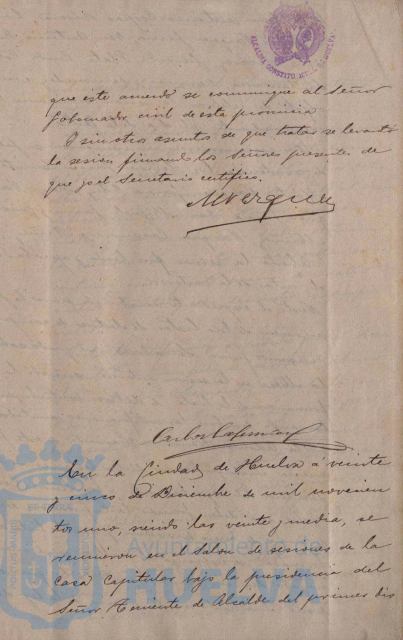 ALCALDIA CONSTITUCIONAL HUELVA
que este acuerdo se comunique al Señor
Gobernador civil de esta provincia
I sin otros asuntos de que tratar se levantó
la sesión firmando los Señores presentes de
que yo el Secretario certifico.
En la Ciudad de Huelva á veinte
y cinco de Diciembre de mil novecien
tos uno, siendo las veinte y media, se
reunieron en el Salon de sesiones de la
casa Capitular bajo la presidencia del
Señor Teniente de Alcalde del primer dis
Ayuntamiento de
HUELVA